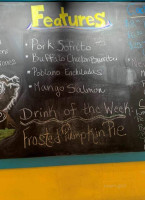 Features
• Pork Sofrito
• Buffalo Chicken Burrito
• Poblano Enchiladas
• Mango Salmon
Drink of the Week
Frosted Pumpkin Pie